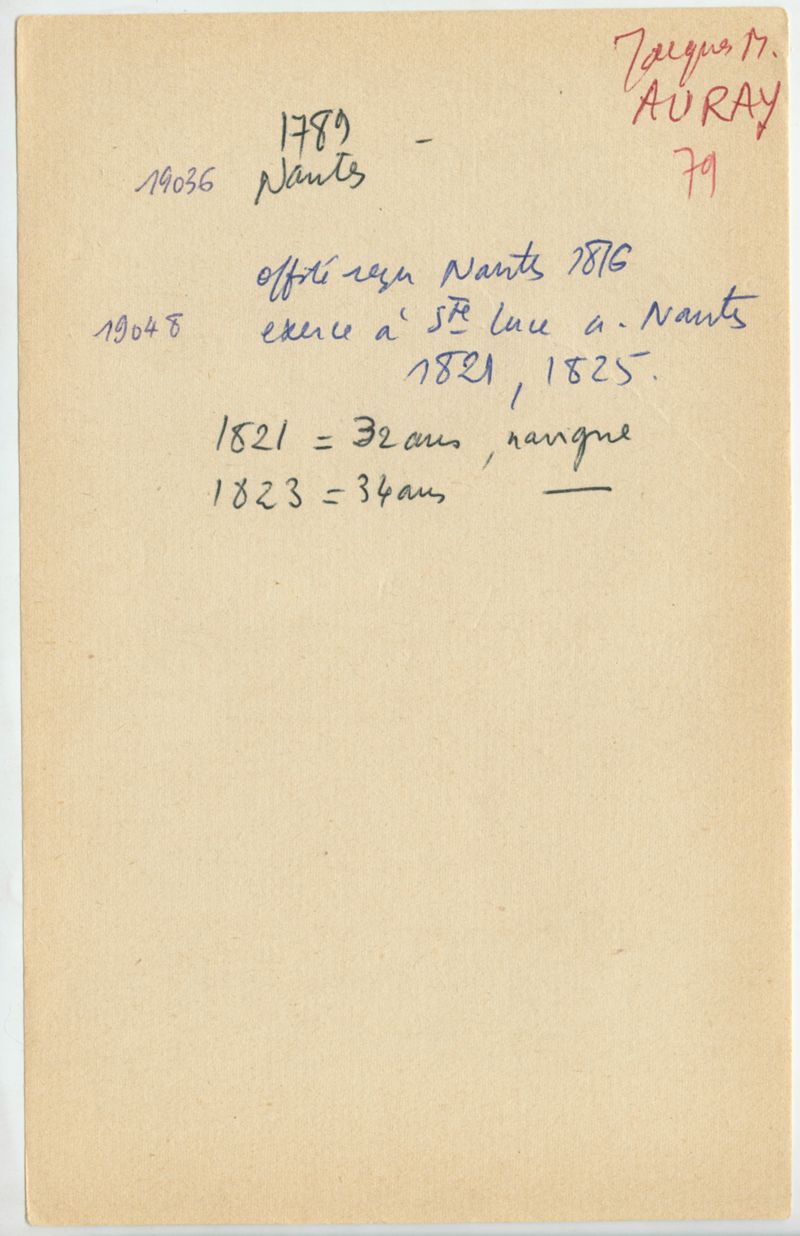 Jacques M.
AURAY
79
1789 -
19036 Nantes
offité reçu Nantes 1816
19048 exerce à Ste Luce a. Nantes
1821, 1825.
1821 = 32 ans, navigue
1823 = 34 ans —